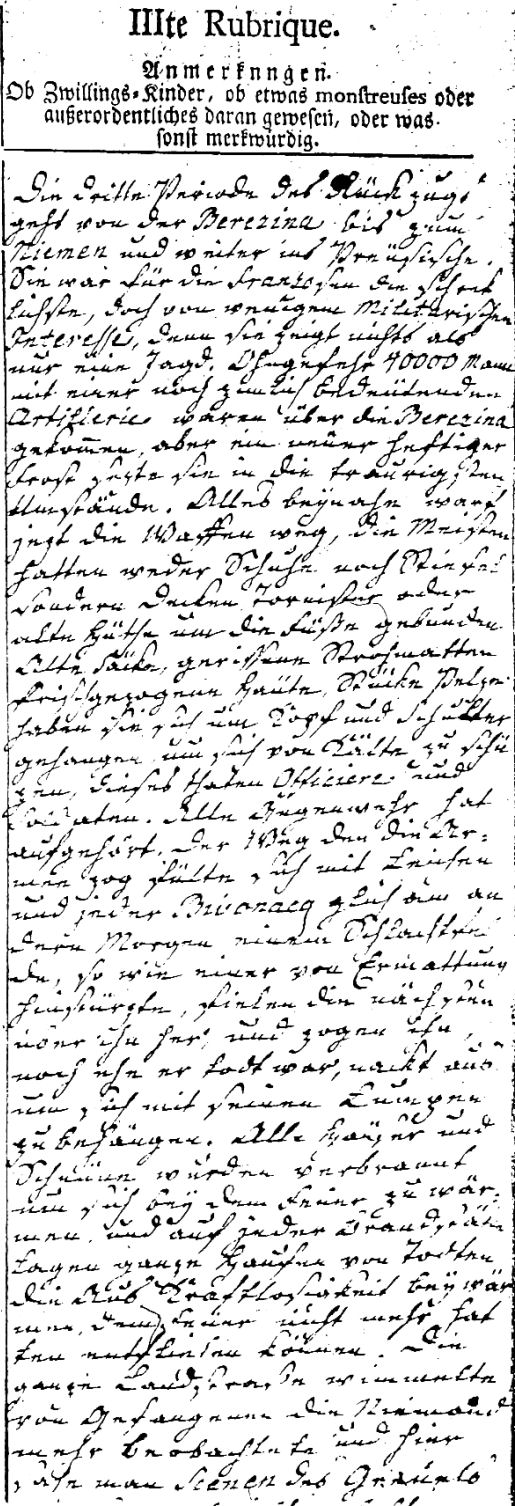 IIIte Rubrique.
Anmerknngen.
Ob Zwillings-Kinder, ob etwas monstreuses oder
außerordentliches daran gewesen, oder was
sonst merkwürdig.
Die dritte Periode des Rückzugs
geht von der Berezina bis zum
Niemen und weiter ins Preüsische.
Sie war für die Franzosen die schrek
lichste, doch von wenigem Militärischen
Interesse, denn sie zeigt nichts als
nur eine Jagd. Ohngefehr 40000 Mann
mit einer noch zimlich bedeutenden
Artillerie waren über die Berezina
gekommen, aber ein neuer heftiger
Frost sezte sie in die traurigsten
Umstände. Alles beynahe warf
jezt die Waffen weg, die Meisten
hatten weder Schuhe noch Stiefel
sondern Decken Tornister oder
alte Hüthe um die Füße gebunden
Alte Säcke, gerissene Strohmatten
frischgezogene Häute, Stücke Pelze
haben sie sich um Kopf und Schulter
gehangen um sich von Kälte zu schü
zen, dieses thaten Officiere und
Soldaten. Alle Gegenwehr hat
aufgehört. Der Weg den die Ar-
mee zog füllte sich mit Leichen
und jeder Bivouacq glich am an
dern Morgen einem Schlachtfel
de, so wie einer von Ermattung
hinstürzte, fielen die nächsten
über ihn her, und zogen ihn,
noch ehe er todt war, nackt aus
um sich mit seinen Lumpen
zu behängen. Alle Häuser und
Scheüne wurden verbrannt
um sich bey dem Feuer zu wär-
men, und auf jeder Brandstätte
lagen ganze Haufen von Todten
die aus Kraftlosigkeit bey wär
men dem Feuer nicht mehr hat
ten entfliehen können. Die
ganze Landstrasse wimmelte
von Gefangenen die Niemand
mehr beobachtete und hier
sahe man Scenen des Greuels